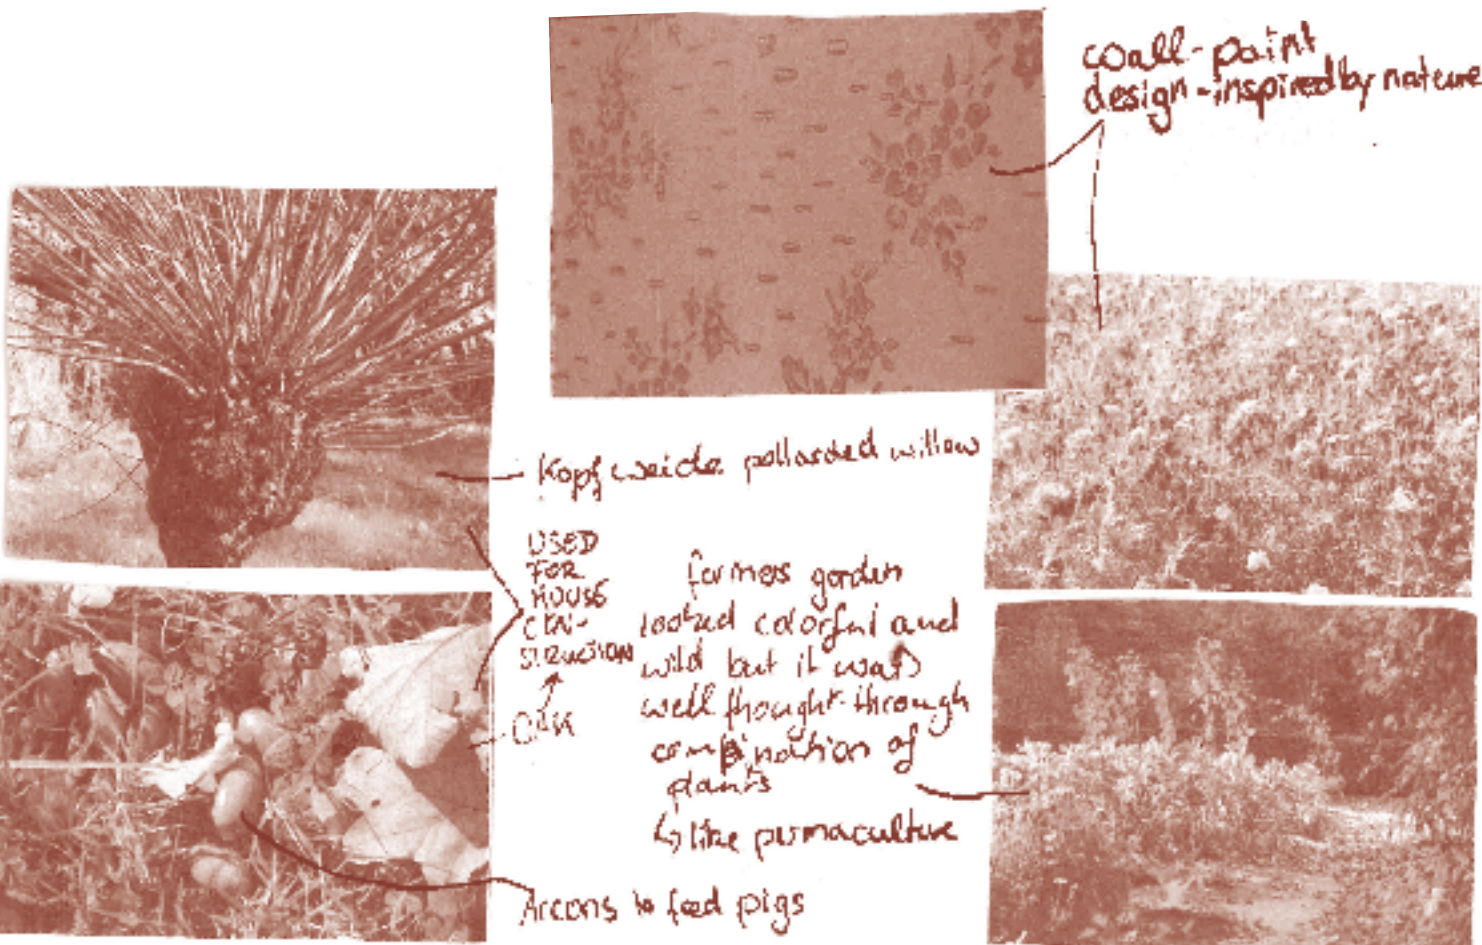 wall-paint
design-inspired by nature
Kopfweide pollarded willow
USED
FOR
HOUSE
CON-
STRUCTION
OAK
farmers garden
looked colorful and
wild but it was
well thought-through
combination of
plants
↳ like permaculture
Accons to feed pigs